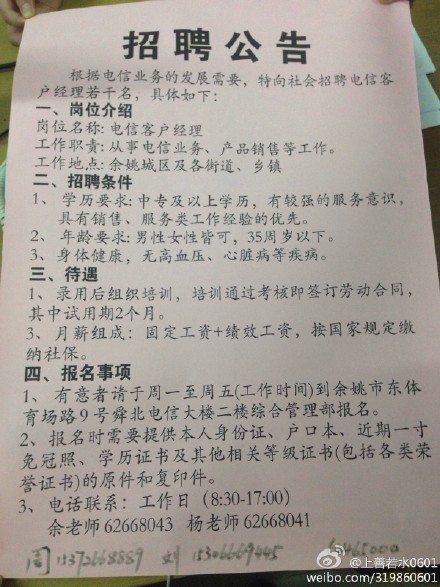 招聘公告
根据电信业务的发展需要，特向社会招聘电信客
户经理若干名，具体如下：
一、岗位介绍
岗位名称: 电信客户经理
工作职责: 从事电信业务、产品销售等工作。
工作地点: 余姚城区及各街道、乡镇
二、招聘条件
1、 学历要求: 中专及以上学历，有较强的服务意识，
具有销售、服务类工作经验的优先。
2、 年龄要求: 男性女性皆可，35周岁以下。
3、 身体健康，无高血压、心脏病等疾病。
三、待遇
1、录用后组织培训，培训通过考核即签订劳动合同，
其中试用期2个月。
3、月薪组成：固定工资+绩效工资，按国家规定缴
纳社保。
四、报名事项
1、 有意者请于周一至周五(工作时间)到余姚市东体
育场路9号舜北电信大楼二楼综合管理部报名。
2、报名时需要提供本人身份证、户口本、近期一寸
免冠照、学历证书及其他相关等级证书(包括各类荣
誉证书)的原件和复印件。
3、 电话联系：工作日（8:30-17:00）
余老师 62668043 杨老师 62668041
周 15372668889 刘 15306669445
@上善若水0601
weibo.com/319860601